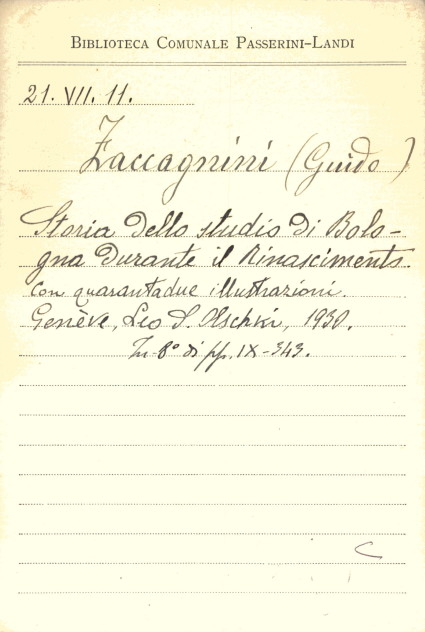 BIBLIOTECA COMUNALE PASSERINI-LANDI
21. VII. 11.
Zaccagnini (Guido)
Storia dello studio di Bolo-
gna durante il Rinascimento.
Con quarantadue illustrazioni.
Genève, Leo S. Olschki, 1930.
In-8° di pp. IX-343.
C